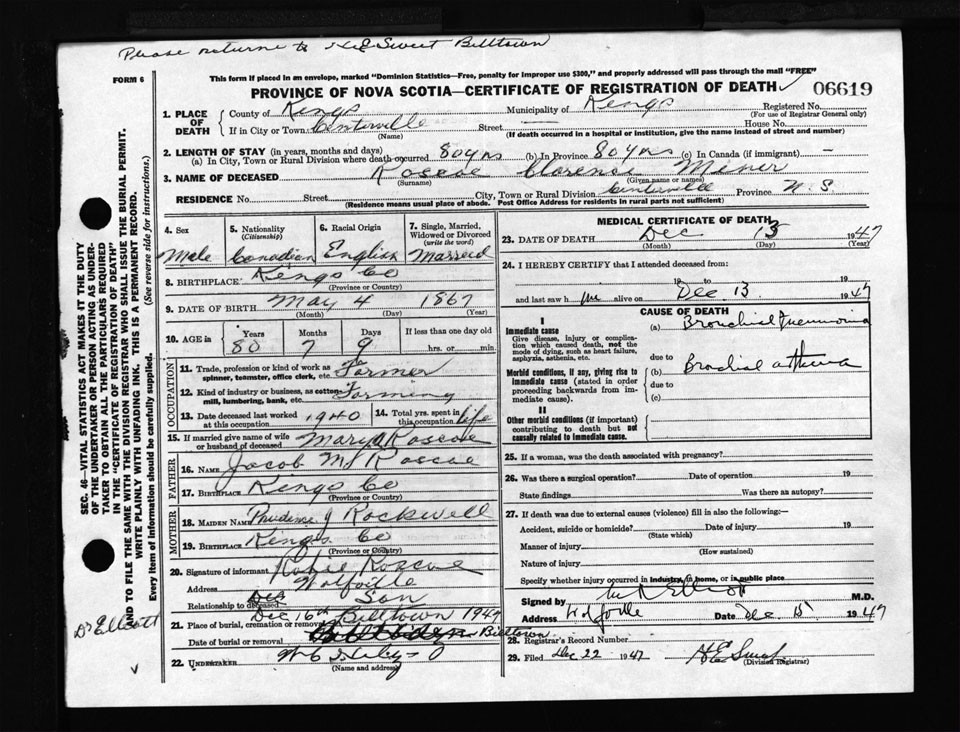 Please returne to H E Sweet Billtown
FORM 6
This form if placed in an envelope, marked "Dominion Statistics—Free, penalty for improper use $300," and properly addressed will pass through the mail "FREE"
PROVINCE OF NOVA SCOTIA—CERTIFICATE OF REGISTRATION OF DEATH 06619
1. PLACE OF DEATH
County of Kings Municipality of Kings Registered No.
(For use of Registrar General only)
If in City or Town Centerville Street — House No.
(Name) (If death occurred in a hospital or institution, give the name instead of street and number)
2. LENGTH OF STAY (in years, months and days)
(a) In City, Town or Rural Division where death occurred 80 yrs (b) In Province 80 yrs (c) In Canada (if immigrant) —
3. NAME OF DECEASED Roscoe Clarence Miner
(Surname) (Given name or names)
RESIDENCE No. Street City, Town or Rural Division Centerville Province N. S.
(Residence means usual place of abode. Post Office Address for residents in rural parts not sufficient)
4. Sex 5. Nationality (Citizenship) 6. Racial Origin 7. Single, Married, Widowed or Divorced (write the word)
Male Canadian English Married
8. BIRTHPLACE Kings Co
(Province or Country)
9. DATE OF BIRTH May 4 1867
(Month) (Day) (Year)
10. AGE in Years Months Days If less than one day old
80 7 9 hrs. or min.
OCCUPATION
11. Trade, profession or kind of work as spinner, teamster, office clerk, etc. Farmer
12. Kind of industry or business, as cotton mill, lumbering, bank, etc. Farming
13. Date deceased last worked at this occupation 1940 14. Total yrs. spent in this occupation life
15. If married give name of wife or husband of deceased Mary Roscoe
FATHER
16. Name Jacob M Roscoe
17. Birthplace Kings Co
(Province or Country)
MOTHER
18. Maiden Name Prudence J Rockwell
19. Birthplace Kings Co
(Province or Country)
20. Signature of informant Roscoe
Address Wolfville
Relationship to deceased Son
21. Place of burial, cremation or removal Dec 16th Billtown 1947
Date of burial or removal Billtown
22. UNDERTAKER W C
(Name and address)
MEDICAL CERTIFICATE OF DEATH
23. DATE OF DEATH Dec 13 1947
(Month) (Day) (Year)
24. I HEREBY CERTIFY that I attended deceased from:
19 to 19
and last saw him alive on Dec 13 1947
CAUSE OF DEATH
I
Immediate cause
Give disease, injury or complication which caused death, not the mode of dying, such as heart failure, asphyxia, asthenia, etc.
(a) Bronchial Pneumonia
due to
Morbid conditions, if any, giving rise to immediate cause (stated in order proceeding backwards from immediate cause).
(b) Brochial asthma
due to
(c)
II
Other morbid conditions (if important) contributing to death but not causally related to immediate cause.
25. If a woman, was the death associated with pregnancy?
26. Was there a surgical operation? Date of operation 19
State findings Was there an autopsy?
27. If death was due to external causes (violence) fill in also the following:—
Accident, suicide or homicide? Date of injury 19
(State which)
Manner of injury
(How sustained)
Nature of injury
Specify whether injury occurred in industry, in home, or in public place
Signed by Elliott M.D.
Address Wolfville Date Dec 15 1947
28. Registrar's Record Number
29. Filed Dec 22 1947 H E Sweet
(Division Registrar)
SEC. 46—VITAL STATISTICS ACT MAKES IT THE DUTY
OF THE UNDERTAKER OR PERSON ACTING AS UNDERTAKER
TO OBTAIN ALL THE PARTICULARS REQUIRED
IN THE "CERTIFICATE OF REGISTRATION OF DEATH"
AND TO FILE THE SAME WITH THE DIVISION REGISTRAR WHO SHALL ISSUE THE BURIAL PERMIT.
WRITE PLAINLY WITH UNFADING INK. THIS IS A PERMANENT RECORD.
Every item of information should be carefully supplied. (See reverse side for instructions.)
Dr Elliott